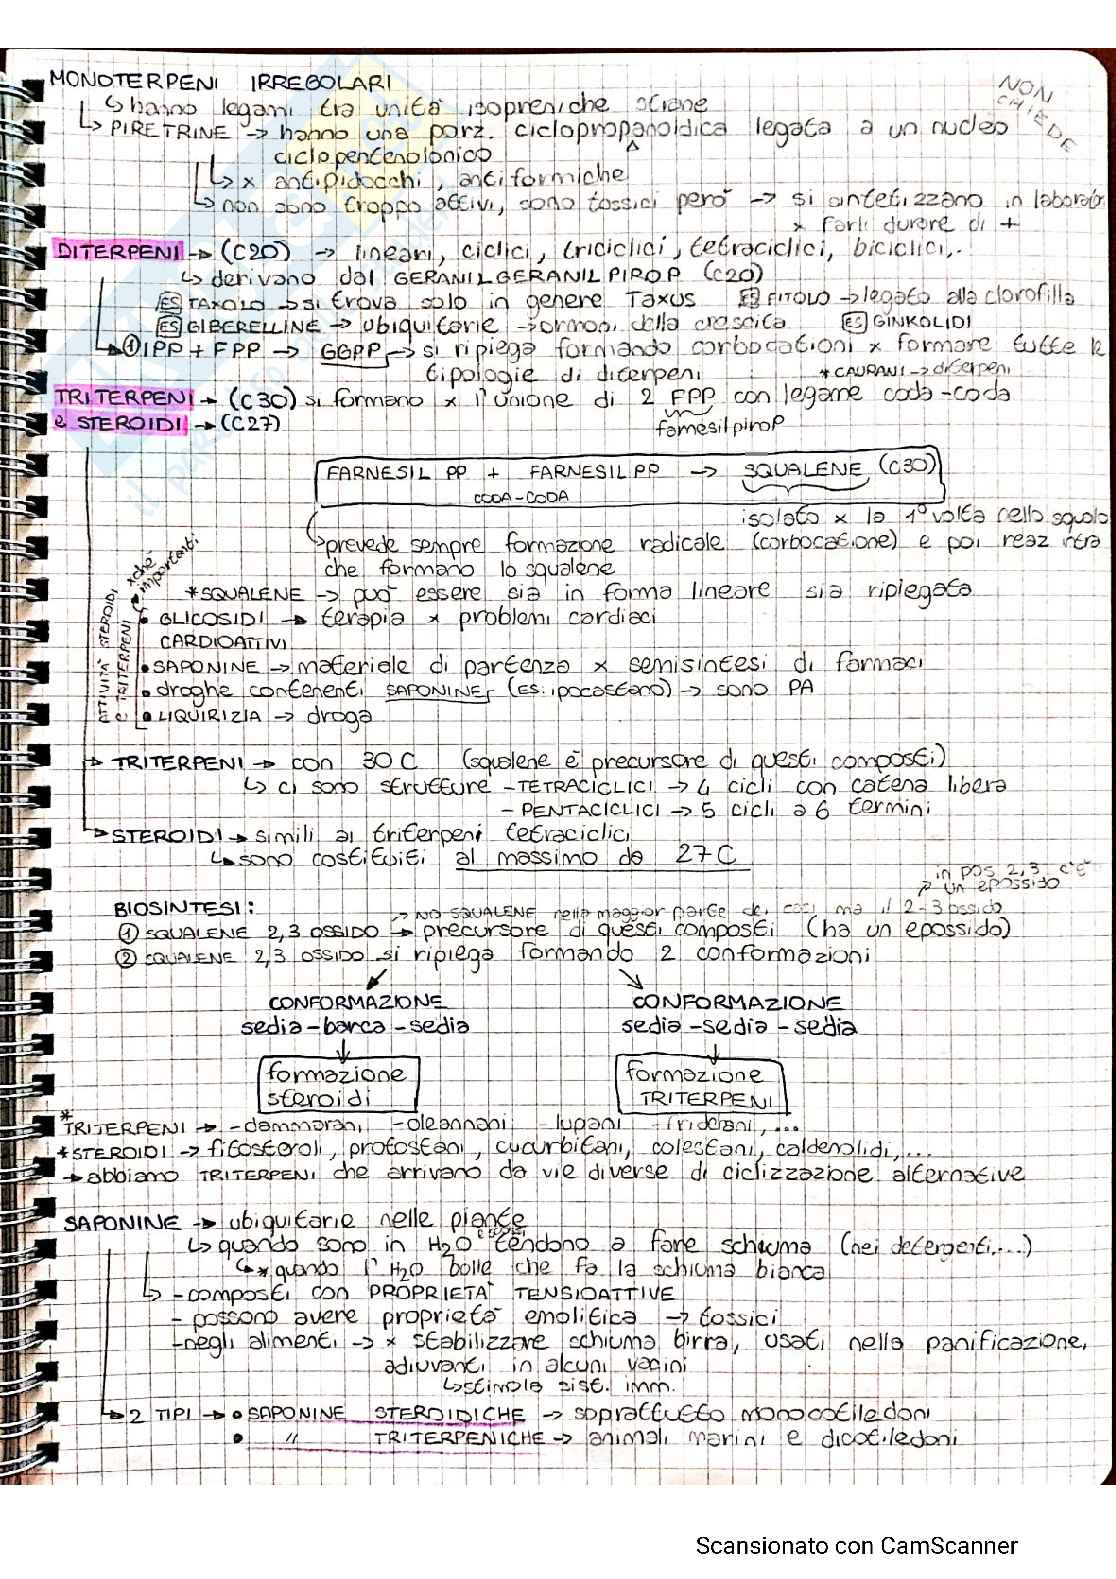 MONOTERPENI IRREGOLARI
NON CHIEDE
↳ hanno legami tra unità isopreniche strane
↳ PIRETRINE → hanno una porz. ciclopropanoidica legata a un nucleo
ciclopentenolonico
↳ x antipidocchi, antiformiche
↳ non sono troppo attivi, sono tossici però → si sintetizzano in laborat
x farli durare di +
DITERPENI → (C20) → lineari, ciclici, triciclici, tetraciclici, biciclici,..
↳ derivano dal GERANILGERANILPIROP (C20)
ES TAXOLO → si trova solo in genere Taxus ES FITOLO → legato alla clorofilla
ES GIBERELLINE → ubiquitarie → ormoni della crescita ES GINKOLIDI
① IPP + FPP → GGPP → si ripiega formando carbocationi x formare tutte le
tipologie di diterpeni *CAURANI → diterpeni
TRITERPENI → (C30) si formano x l'unione di 2 FPP con legame coda-coda
e STEROIDI → (C27) farnesilpiroP
FARNESIL PP + FARNESIL PP → SQUALENE (C30)
CODA-CODA
isolato x la 1° volta nello squalo
↳ prevede sempre formazione radicale (carbocatione) e poi reaz intra
che formano lo squalene
*SQUALENE → può essere sia in forma lineare sia ripiegata
ATTIVITÀ STEROIDI e TRITERPENI
xchè importanti
• GLICOSIDI → terapia x problemi cardiaci
CARDIOATTIVI
• SAPONINE → materiale di partenza x semisintesi di farmaci
• droghe contenenti SAPONINE (ES: ipocastano) → sono PA
• LIQUIRIZIA → droga
↳ TRITERPENI → con 30 C (squalene è precursore di questi composti)
↳ ci sono strutture - TETRACICLICI → 4 cicli con catena libera
- PENTACICLICI → 5 cicli a 6 termini
↳ STEROIDI → simili ai triterpeni tetraciclici
↳ sono costituiti al massimo da 27 C
in pos 2,3 c'è
↗ un epossido
BIOSINTESI: → NO SQUALENE nella maggior parte dei casi ma il 2-3 ossido
① SQUALENE 2,3 OSSIDO → precursore di questi composti (ha un epossido)
② SQUALENE 2,3 OSSIDO si ripiega formando 2 conformazioni
CONFORMAZIONE CONFORMAZIONE
sedia-barca-sedia sedia-sedia-sedia
formazione formazione
steroidi TRITERPENI
*TRITERPENI → -dammarani, -oleannani -lupani -fridelani,...
*STEROIDI → fitosteroli, protostani, cucurbitani, colestani, caldenolidi,...
→ abbiamo TRITERPENI che arrivano da vie diverse di ciclizzazione alternative
SAPONINE → ubiquitarie nelle piante
↳ quando sono in H2O tendono a fare schiuma (nei detergenti,...)
↳ *quando l'H2O bolle che fa la schiuma bianca
↳ - composti con PROPRIETA' TENSIOATTIVE
- possono avere proprietà emolitica → tossici
- negli alimenti → x stabilizzare schiuma birra, usati nella panificazione,
adiuvanti in alcuni vaccini
↳ stimola sist. imm.
↳ 2 TIPI → • SAPONINE STEROIDICHE → soprattutto monocotiledoni
• " TRITERPENICHE → animali marini e dicotiledoni
Scansionato con CamScanner